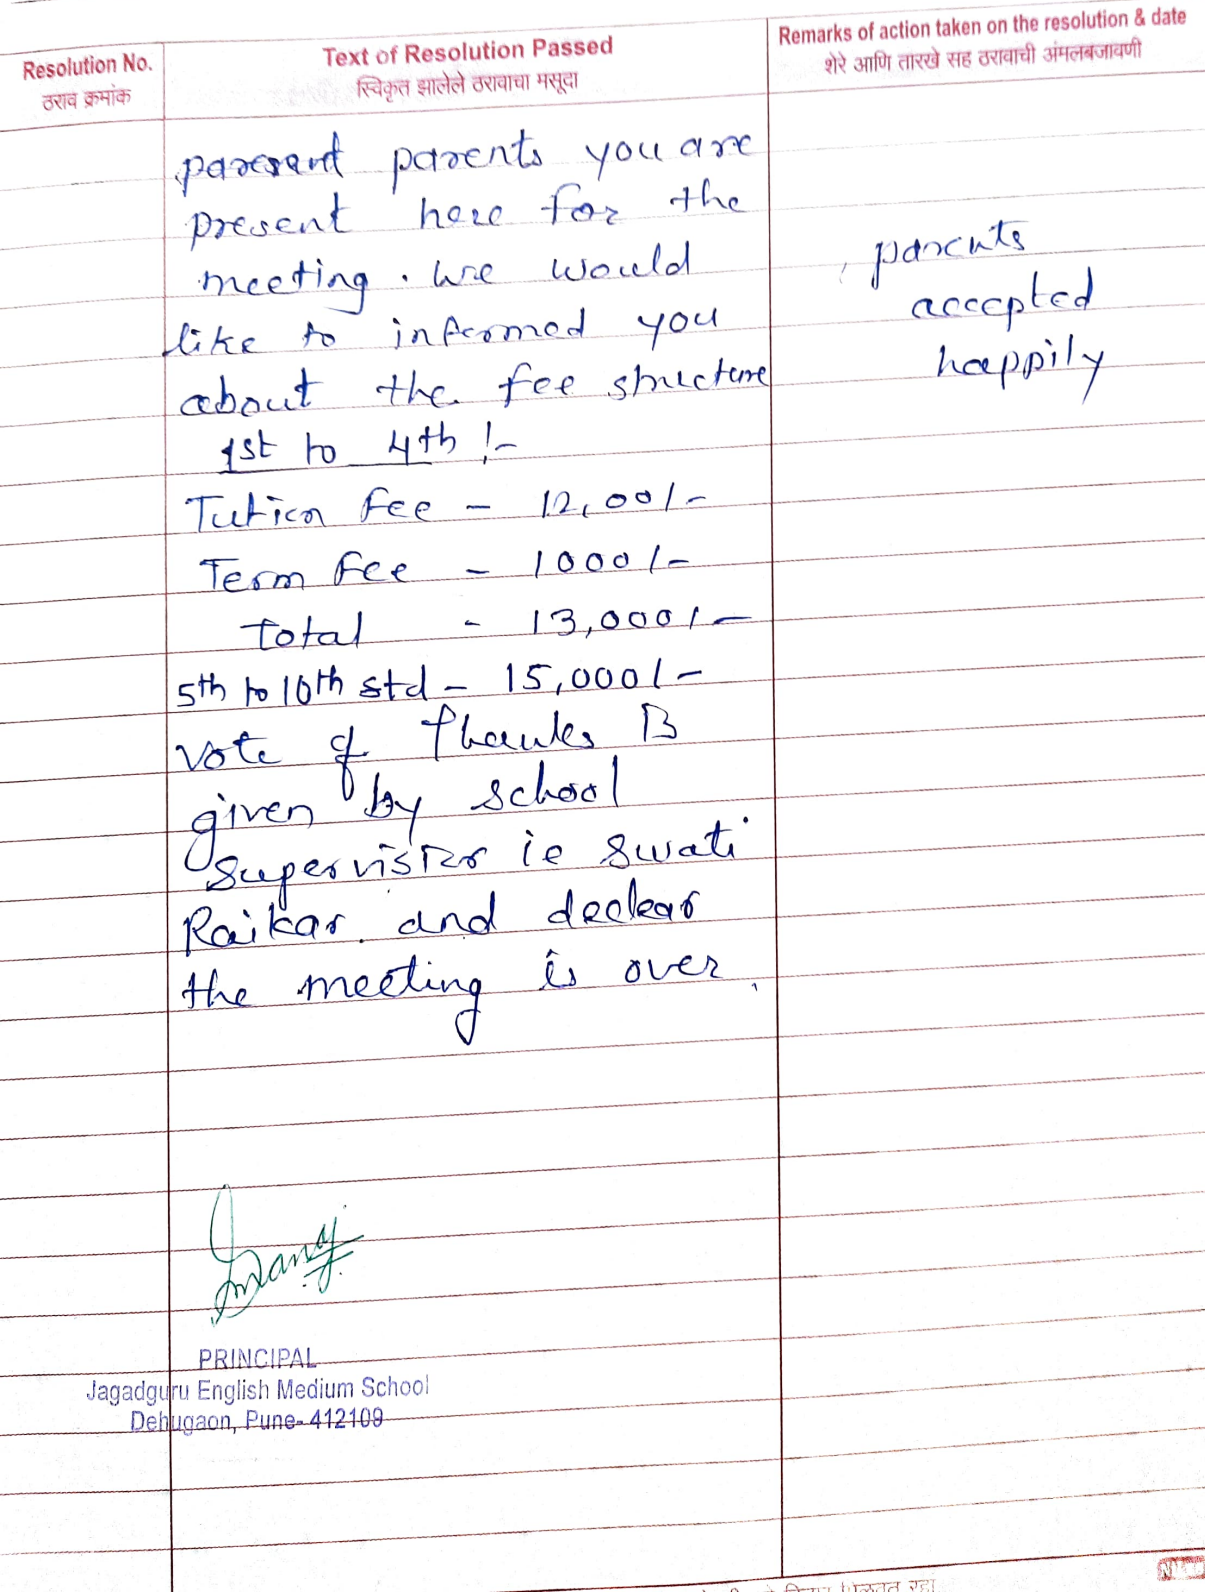 Resolution No.
ठराव क्रमांक
Text of Resolution Passed
स्विकृत झालेले ठरावाचा मसूदा
Remarks of action taken on the resolution & date
शेरे आणि तारखे सह ठरावाची अंमलबजावणी
parents you are
present here for the
meeting. We would
like to informed you
about the fee structure
1st to 4th :-
Tution fee - 12,00/-
Term fee - 1000/-
total - 13,000/-
5th to 10th std - 15,000/-
vote of Thanks
given by school
supervistor ie swati
Raikar. and declear
the meeting is over.
parents
accepted
happily
PRINCIPAL
Jagadguru English Medium School
Dehugaon, Pune- 412109